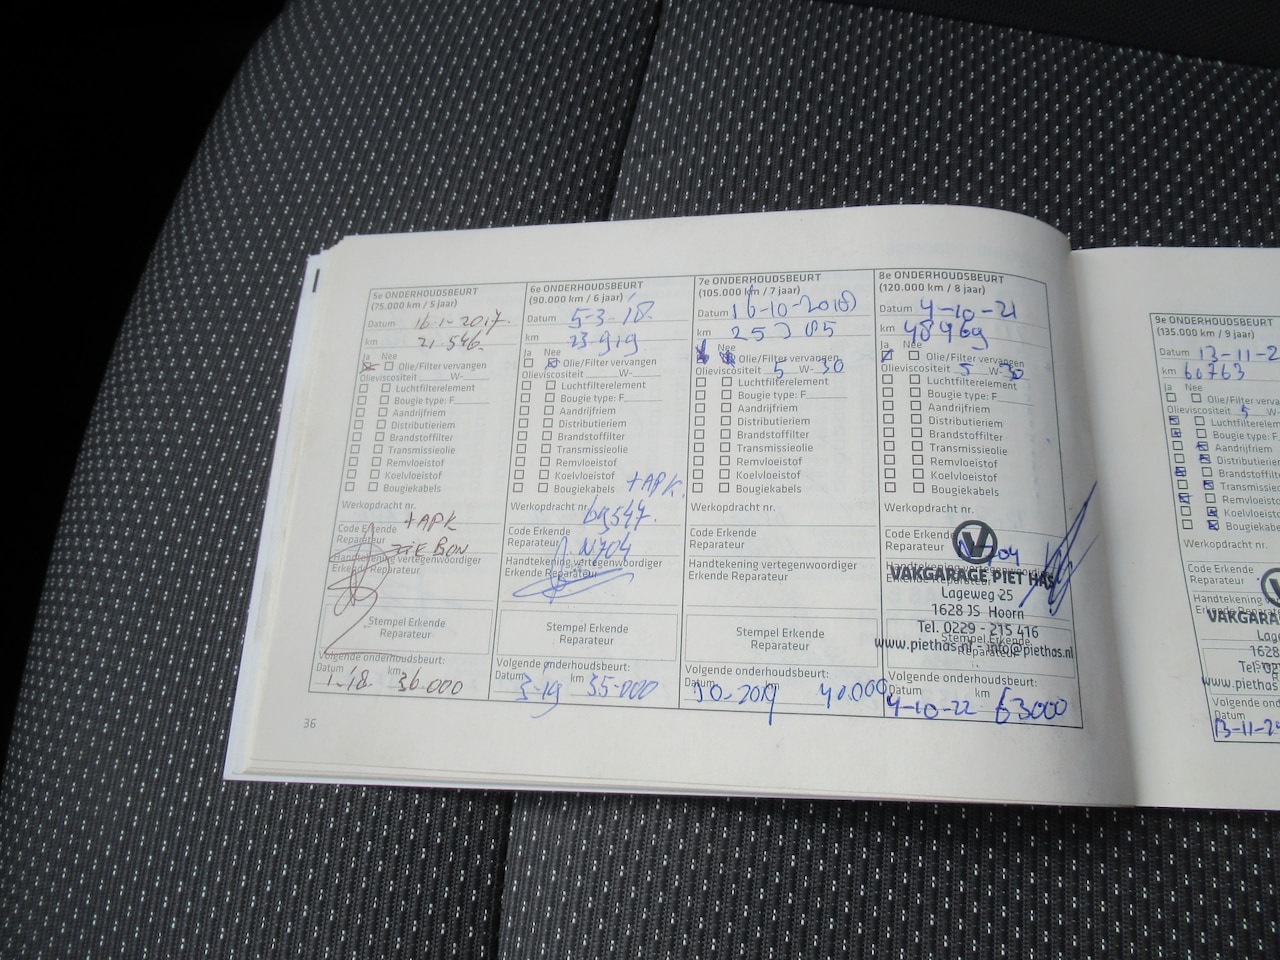 5e ONDERHOUDSBEURT
(75.000 km / 5 jaar)
Datum 16-1-2017.
km 21.546.
Ja Nee
Olie/Filter vervangen
Olieviscositeit W-
Luchtfilterelement
Bougie type: F
Aandrijfriem
Distributieriem
Brandstoffilter
Transmissieolie
Remvloeistof
Koelvloeistof
Bougiekabels
Werkopdracht nr.
+APK
Code Erkende
Reparateur
ZIE BON
Handtekening vertegenwoordiger
Erkende Reparateur
Stempel Erkende
Reparateur
Volgende onderhoudsbeurt:
Datum km
1-'18. 36.000
36
6e ONDERHOUDSBEURT
(90.000 km / 6 jaar)
Datum 5-3-'18.
km 23.919
Ja Nee
Olie/Filter vervangen
Olieviscositeit W-
Luchtfilterelement
Bougie type: F
Aandrijfriem
Distributieriem
Brandstoffilter
Transmissieolie
Remvloeistof
Koelvloeistof
Bougiekabels
+APK.
Werkopdracht nr.
Code Erkende
Reparateur N704
Handtekening vertegenwoordiger
Erkende Reparateur
Stempel Erkende
Reparateur
Volgende onderhoudsbeurt:
Datum km
3-19 35-000
7e ONDERHOUDSBEURT
(105.000 km / 7 jaar)
Datum 16-10-2018
km
Ja Nee
Olie/Filter vervangen
Olieviscositeit 5 W-30
Luchtfilterelement
Bougie type: F
Aandrijfriem
Distributieriem
Brandstoffilter
Transmissieolie
Remvloeistof
Koelvloeistof
Bougiekabels
Werkopdracht nr.
Code Erkende
Reparateur
Handtekening vertegenwoordiger
Erkende Reparateur
Stempel Erkende
Reparateur
Volgende onderhoudsbeurt:
Datum km
10-2019 40.000
8e ONDERHOUDSBEURT
(120.000 km / 8 jaar)
Datum 4-10-21
km 48969
Ja Nee
Olie/Filter vervangen
Olieviscositeit 5 W-30
Luchtfilterelement
Bougie type: F
Aandrijfriem
Distributieriem
Brandstoffilter
Transmissieolie
Remvloeistof
Koelvloeistof
Bougiekabels
Werkopdracht nr.
Code Erkende
Reparateur N704
Handtekening vertegenwoordiger
Erkende Reparateur
VAKGARAGE PIET HAS
Lageweg 25
1628 JS Hoorn
Tel. 0229 - 215 416
Stempel Erkende
Reparateur
www.piethas.nl - info@piethas.nl
Volgende onderhoudsbeurt:
Datum km
4-10-22 63000
9e ONDERHOUDSBEURT
(135.000 km / 9 jaar)
Datum 13-11-2
km 60763
Ja Nee
Olie/Filter vervan
Olieviscositeit 5 W-
Luchtfilterelem
Bougie type: F
Aandrijfriem
Distributieriem
Brandstoffilter
Transmissie
Remvloeisto
Koelvloeist
Bougiekabe
Werkopdracht nr.
Code Erkende
Reparateur
Handtekening ve
Erkende Reparate
VAKGARA
Lage
1628
Tel. 02
www.piethas
Volgende ond
Datum
13-11-24